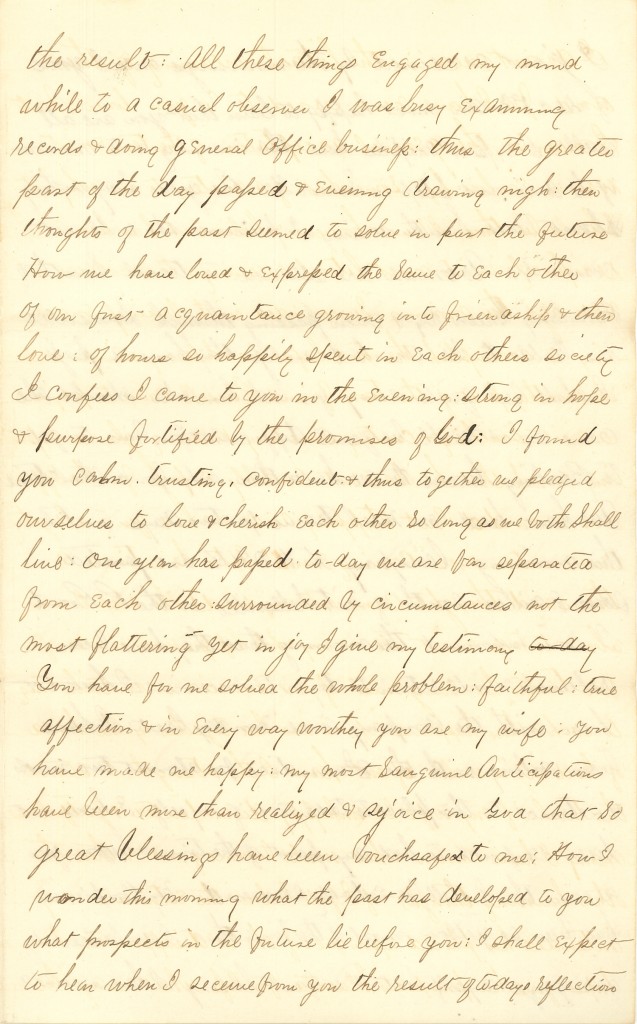 the result: All these things Engaged my mind
while to a casual observer I was busy Examining
records & doing general Office business: thus the greater
part of the day passed & Evening drawing nigh: then
thoughts of the past seemed to solve in part the future
How we have loved & Expressed the Same to Each other
of our first acquaintance growing into friendship & then
love: of hours so happily spent in Each others society
I confess I came to you in the Evening: strong in hope
& purpose fortified by the promises of God: I found
you calm. trusting. Confident & thus together we pledged
ourselves to love & cherish Each other So long as we both Shall
live: One year has passed to-day we are far separated
from Each other: surrounded by circumstances not the
most flattering yet in joy I give my testimony to-day
You have for me solved the whole problem: faithful: true
affection & in Every way worthy you are my wife: You
have made me happy: my most Sanguine Anticipations
have been more than realized & rejoice in God that So
great blessings have been Vouchsafed to me: How I
wonder this morning what the past has developed to you
what prospects in the future lie before you: I shall Expect
to hear when I receive from you the result of todays reflection